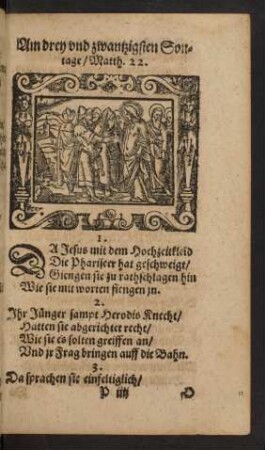 Am drey vnd zwantzigsten Son-
tage/ Matth. 22.
1.
DA Jesus mit dem Hochzeitkleid
Die Phariseer hat geschweigt/
Giengen sie zu rathschlagen hin
Wie sie mit worten fiengen jn.
2.
Ihr Jünger sampt Herodis Knecht/
Hatten sie abgerichtet recht/
Wie sie es solten greiffen an/
Vnd jr Frag bringen auff die Bahn.
3.
Da sprachen sie einfeltiglich/
P iiij O